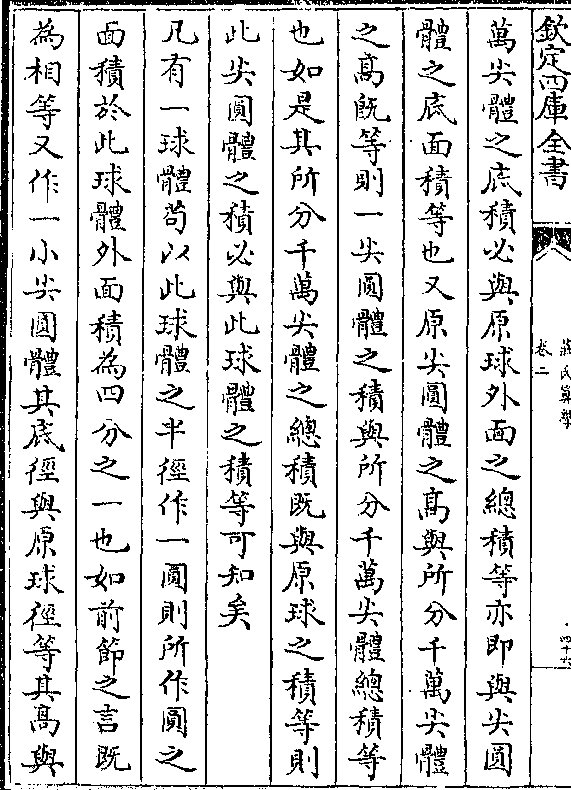 欽定四庫全書
莊氏算學
卷二
四十六
萬尖體之底積必與原球外面之總積等亦即與尖圓
體之底面積等也又原尖圓體之髙與所分千萬尖體
之髙既等則一尖圓體之積與所分千萬尖體總積等
也如是其所分千萬尖體之總積既與原球之積等則
此尖圓體之積必與此球體之積等可知矣
凡有一球體苟以此球體之半徑作一圓則所作圓之
面積於此球體外面積為四分之一也如前節之言既
為相等又作一小尖圓體其底徑與原球徑等其髙與